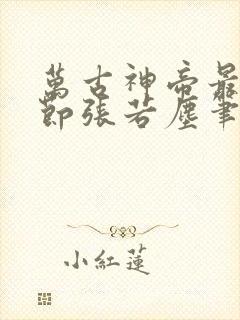 萬古神帝最
節張若塵筆
小紅蓮